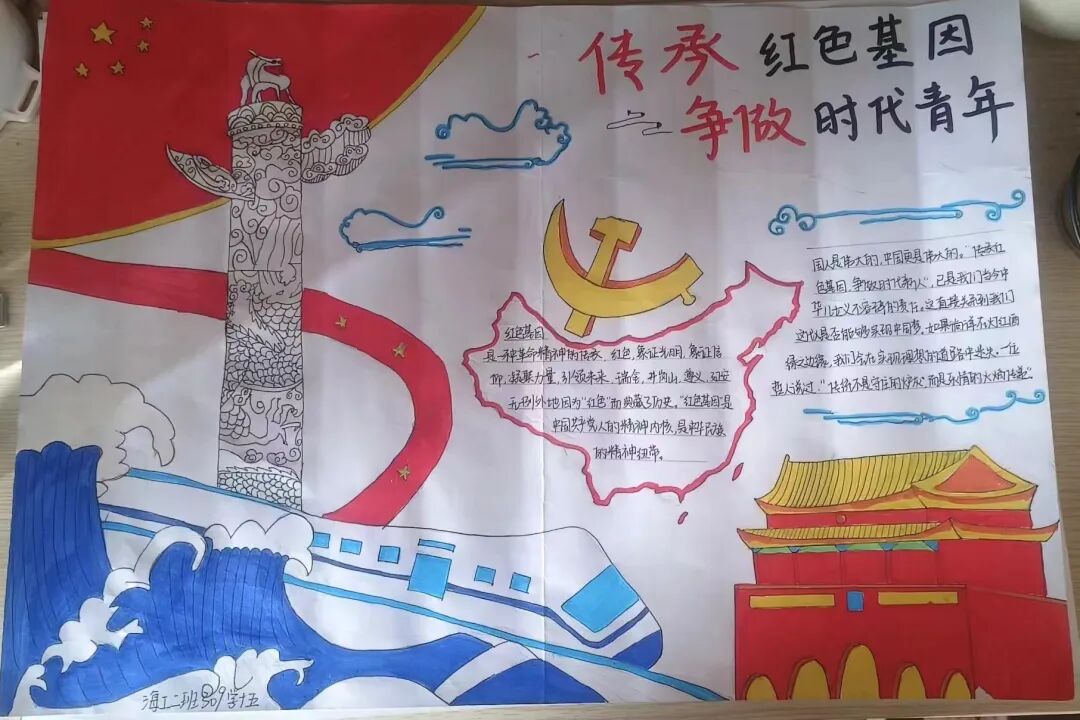 传承 红色基因
争做 时代青年
国人是伟大的,中国更是伟大的。“传承红
色基因,争做时代新人”,已是我们当今中
华儿女义不容辞的责任。这直接关系到我们
这代是否能够实现中国梦,如果徜徉不灯红酒
绿之边缘,我们会在实现理想的道路中迷失。一位
哲人说过:“传统不是守住的炉灰,而是热情的火焰传递”
红色基因
是一种革命精神的传承,红色,象征光明,象征信
仰,凝聚力量,引领未来,瑞金,井岗山,遵义,延安
无例外地因为“红色”而典藏了历史。“红色基因”是
中国共产党人的精神内核,是中华民族
的精神纽带。
海工二班